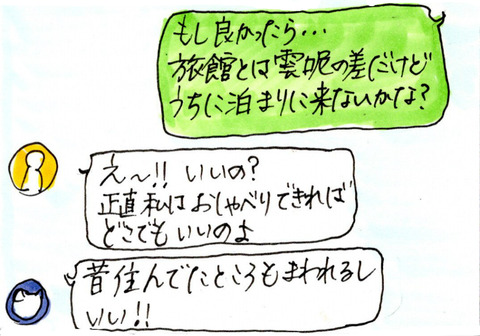 もし良かったら･･･
旅館とは雲泥の差だけど
うちに泊まりに来ないかな?
え〜!! いいの?
正直私はおしゃべりできれば
どこでもいいのよ
昔住んでたところもまわれるし
いい!!